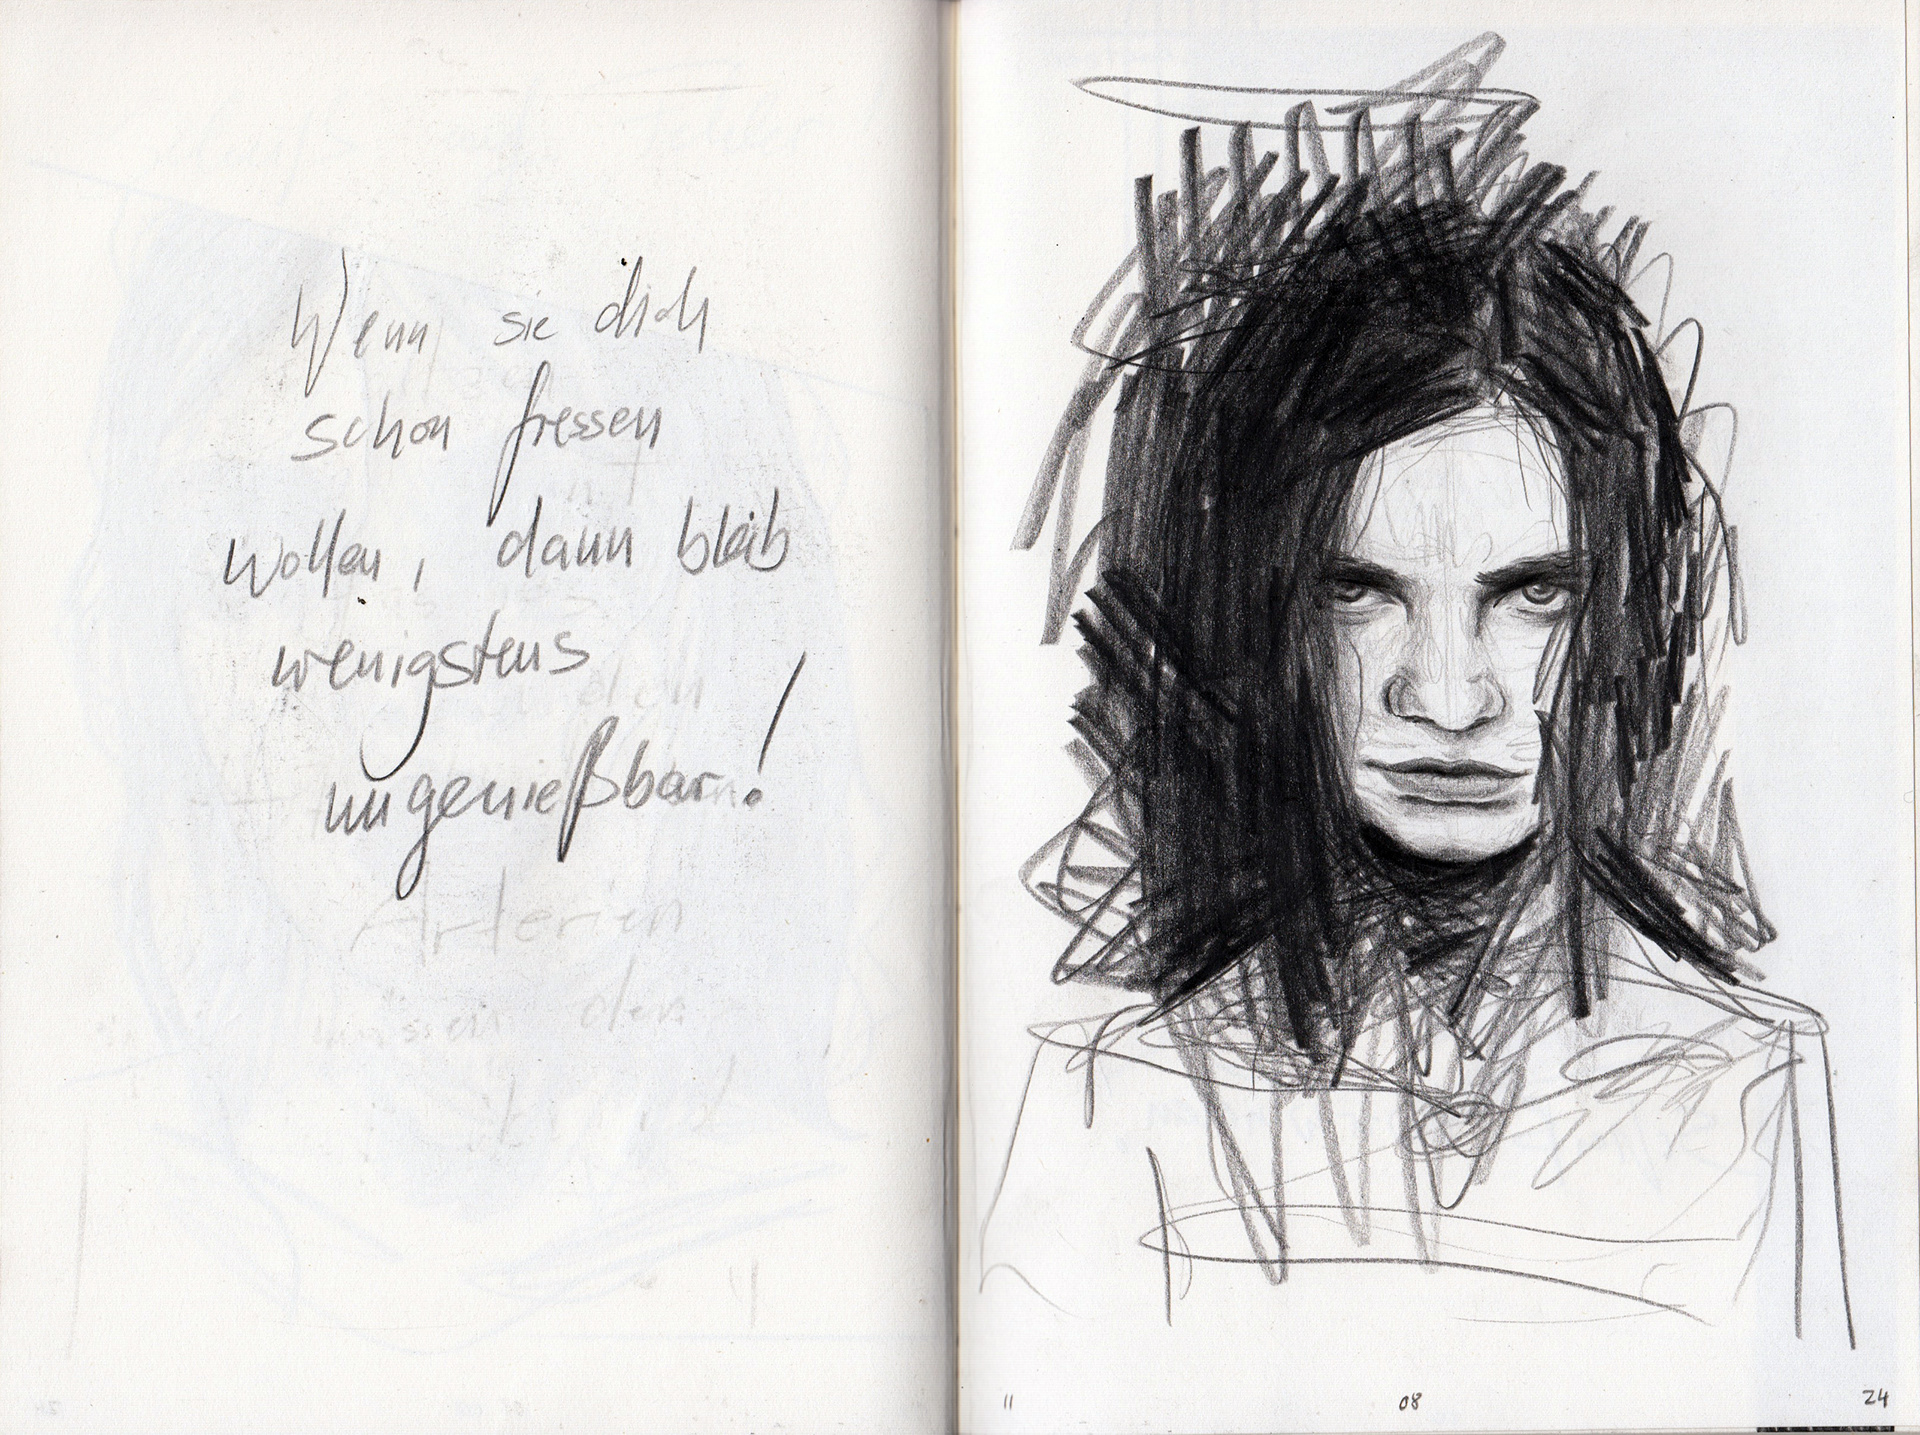 Wenn sie dich
schon fressen
wollen, dann bleib
wenigstens
ungenießbar!
Arterien
11 08 24